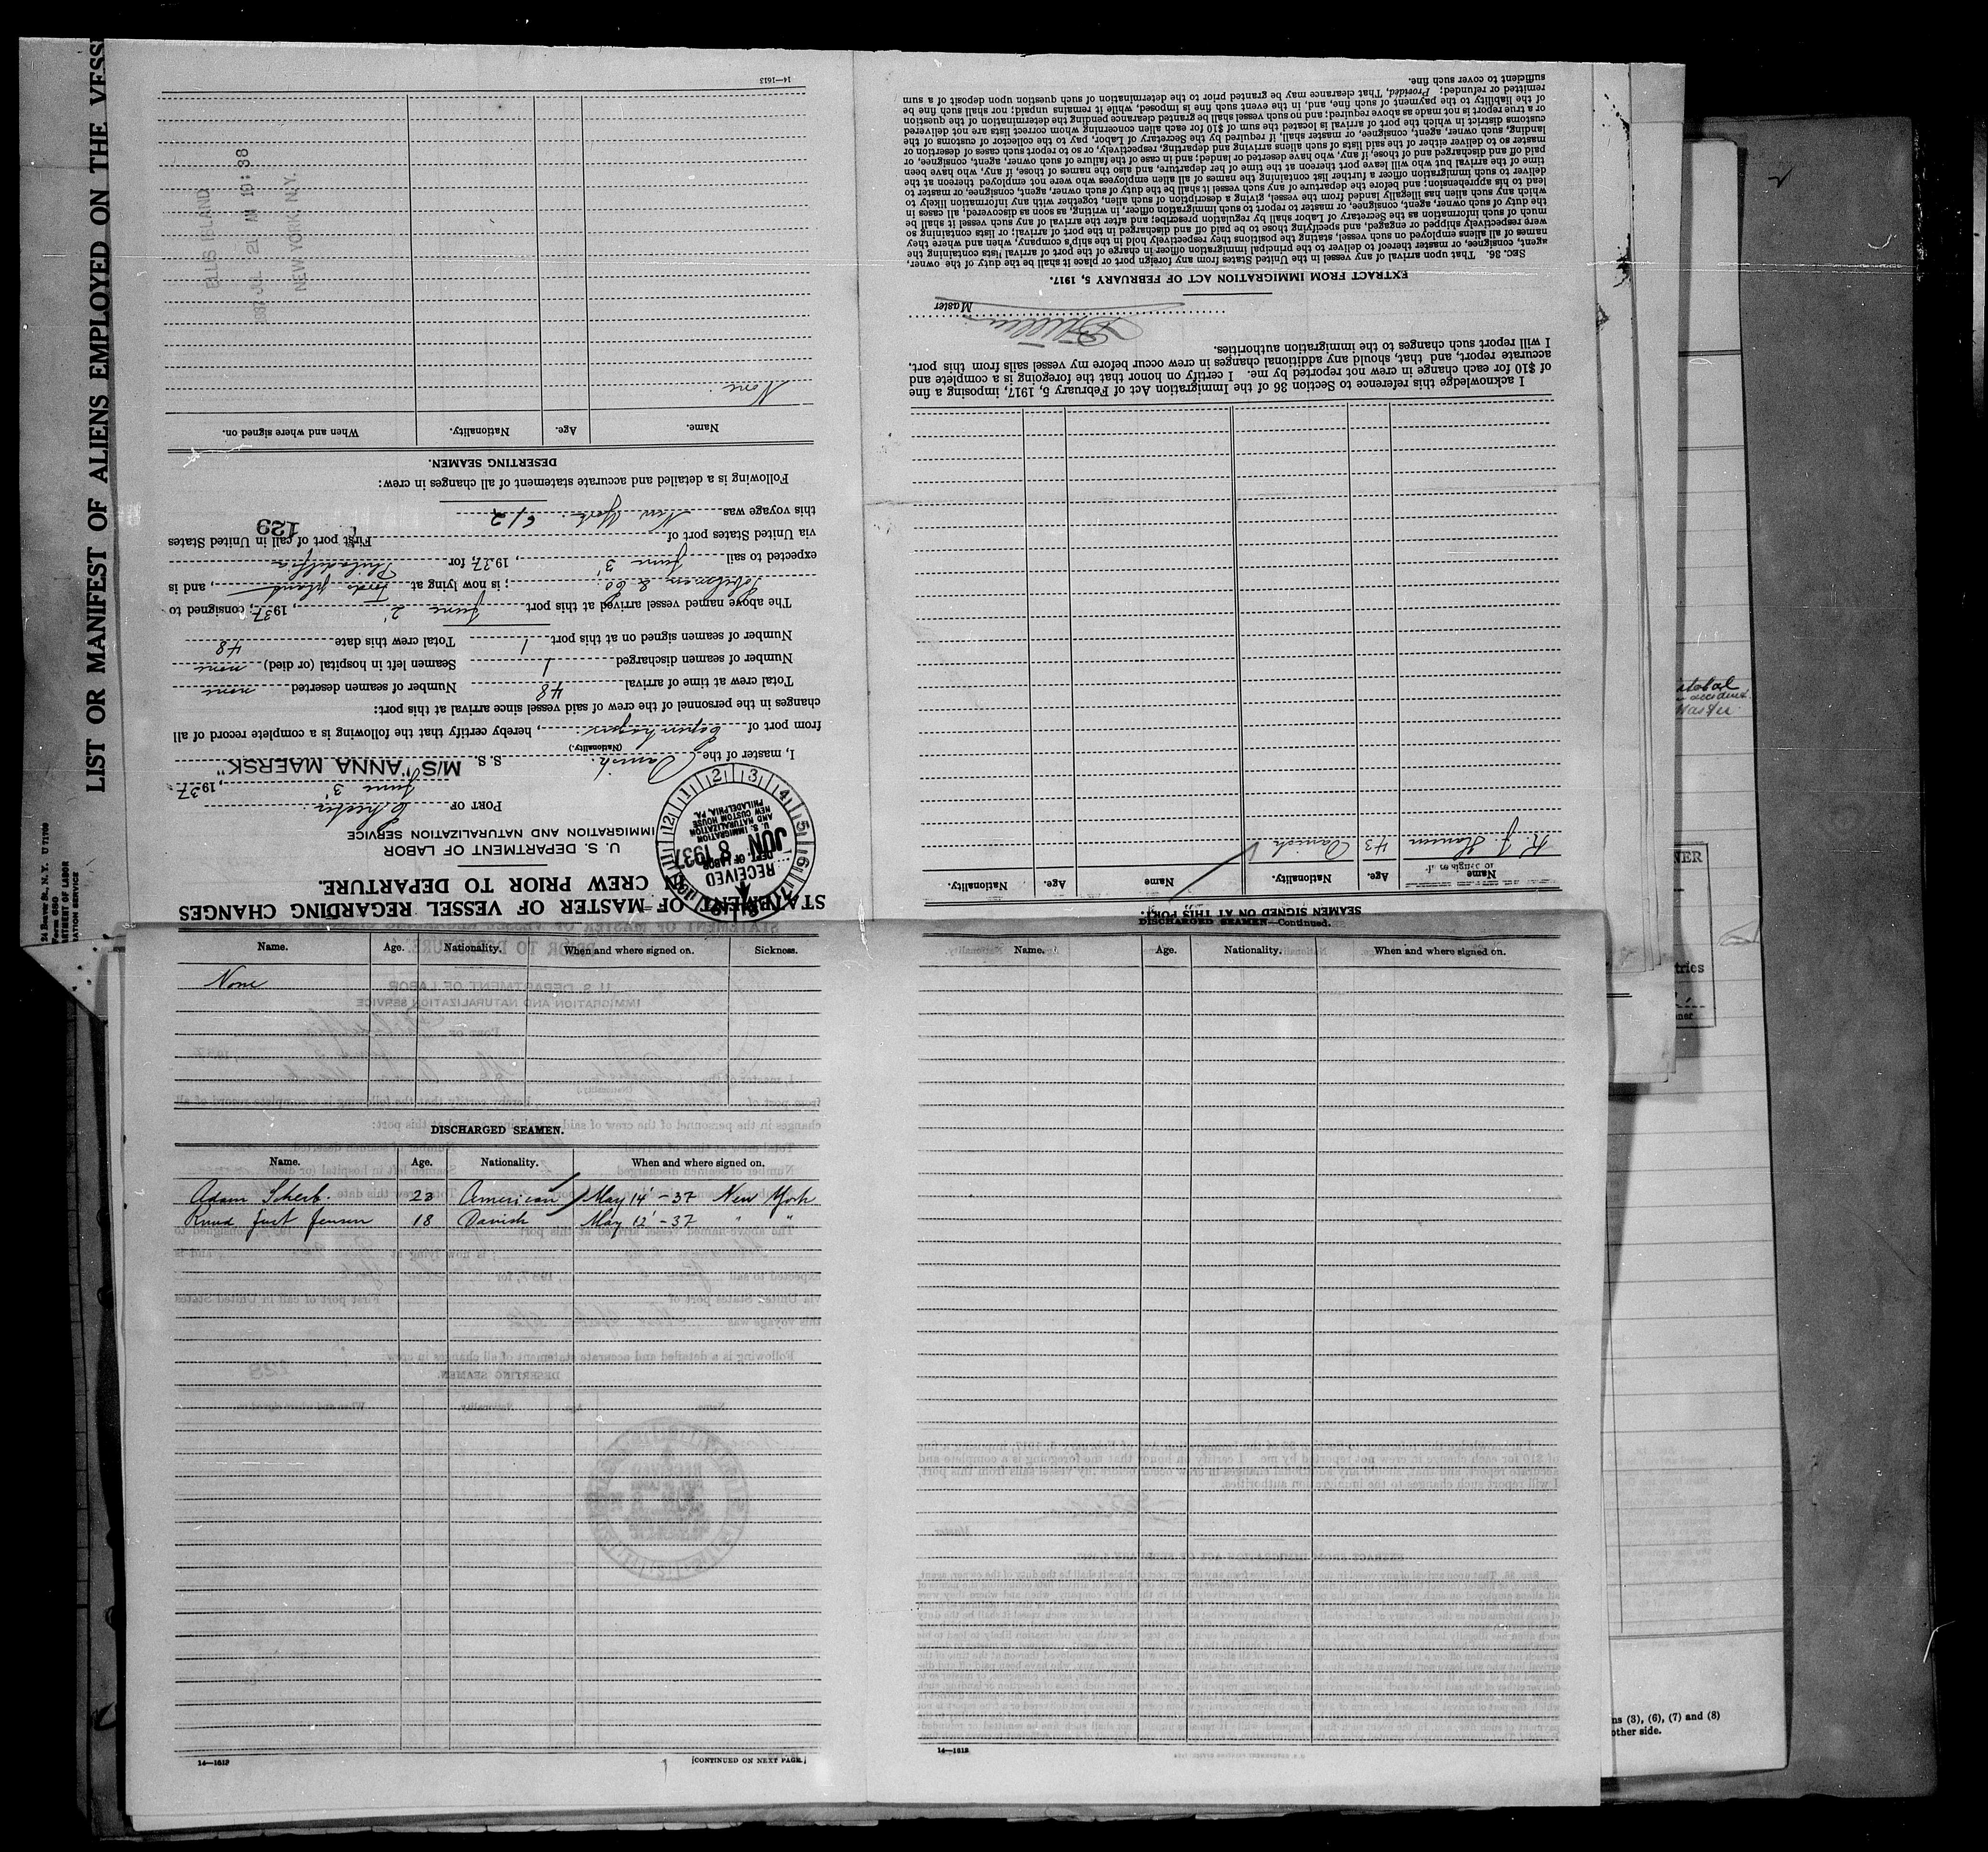 LIST OR MANIFEST OF ALIENS EMPLOYED ON THE VESS
24 Beaver St., N. Y. U 71700
Form 680
ARTMENT OF LABOR
ATION SERVICE
STATEMENT OF MASTER OF VESSEL REGARDING CHANGES
IN CREW PRIOR TO DEPARTURE.
U. S. DEPARTMENT OF LABOR
IMMIGRATION AND NATURALIZATION SERVICE
RECEIVED
DEPT. OF LABOR
JUN 8 1937
U. S. IMMIGRATION
AND NATURALIZATION
NEW CUSTOM HOUSE
PHILADELPHIA, PA.
PORT OF Chester.
June 3', 1937.
I, master of the Danish. S. S. M/S "ANNA MAERSK"
(Nationality.)
from port of Copenhagen., hereby certify that the following is a complete record of all
changes in the personnel of the crew of said vessel since arrival at this port:
Total crew at time of arrival 48 Number of seamen deserted none
Number of seamen discharged 1 Seamen left in hospital (or died) none
Number of seamen signed on at this port 1 Total crew this date 48
The above named vessel arrived at this port June 2', 1937, consigned to
& Co.; is now lying at Fords plant, and is
expected to sail June 3', 1937, for Philadelfia
via United States port of First port of call in United States
129
this voyage was New York. 6/2
Following is a detailed and accurate statement of all changes in crew:
DESERTING SEAMEN.
Name. Age. Nationality. When and where signed on.
None.
ELLIS ISLAND
1937 JUL 21 AM 10:38
NEW YORK, N.Y.
14—1613
SEAMEN SIGNED ON AT THIS PORT.
Name Age. Nationality. Name Age. Nationality.
K. J. Hansen 43 Danish
I acknowledge this reference to Section 36 of the Immigration Act of February 5, 1917, imposing a fine
of $10 for each change in crew not reported by me. I certify on honor that the foregoing is a complete and
accurate report, and that, should any additional changes in crew occur before my vessel sails from this port,
I will report such changes to the immigration authorities.
Master
EXTRACT FROM IMMIGRATION ACT OF FEBRUARY 5, 1917.
SEC. 36. That upon arrival of any vessel in the United States from any foreign port or place it shall be the duty of the owner,
agent, consignee, or master thereof to deliver to the principal immigration officer in charge of the port of arrival lists containing the
names of all aliens employed on such vessel, stating the positions they respectively hold in the ship's company, when and where they
were respectively shipped or engaged, and specifying those to be paid off and discharged in the port of arrival; or lists containing so
much of such information as the Secretary of Labor shall by regulation prescribe; and after the arrival of any such vessel it shall be
the duty of such owner, agent, consignee, or master to report to such immigration officer, in writing, as soon as discovered, all cases in
which any such alien has illegally landed from the vessel, giving a description of such alien, together with any information likely to
lead to his apprehension; and before the departure of any such vessel it shall be the duty of such owner, agent, consignee, or master to
deliver to such immigration officer a further list containing the names of all alien employees who were not employed thereon at the
time of the arrival but who will leave port thereon at the time of her departure, and also the names of those, if any, who have been
paid off and discharged and of those, if any, who have deserted or landed; and in case of the failure of such owner, agent, consignee, or
master so to deliver either of the said lists of such aliens arriving and departing, respectively, or so to report such cases of desertion or
landing, such owner, agent, consignee, or master shall, if required by the Secretary of Labor, pay to the collector of customs of the
customs district in which the port of arrival is located the sum of $10 for each alien concerning whom correct lists are not delivered
or a true report is not made as above required; and no such vessel shall be granted clearance pending the determination of the question
of the liability to the payment of such fine, and, in the event such fine is imposed, while it remains unpaid; nor shall such fine be
remitted or refunded: Provided, That clearance may be granted prior to the determination of such question upon deposit of a sum
sufficient to cover such fine.
Name. Age. Nationality. When and where signed on. Sickness.
None
DISCHARGED SEAMEN.
Name. Age. Nationality. When and where signed on.
Adam Scherb. 23 American May 14' - 37 New York
Knud Just Jensen 18 Danish May 12' - 37 " "
14—1613
[CONTINUED ON NEXT PAGE.]
DISCHARGED SEAMEN—Continued.
Name. Age. Nationality. When and where signed on.
14—1613
accident
Master
NER
tries
ner
ns (3), (6), (7) and (8)
other side.